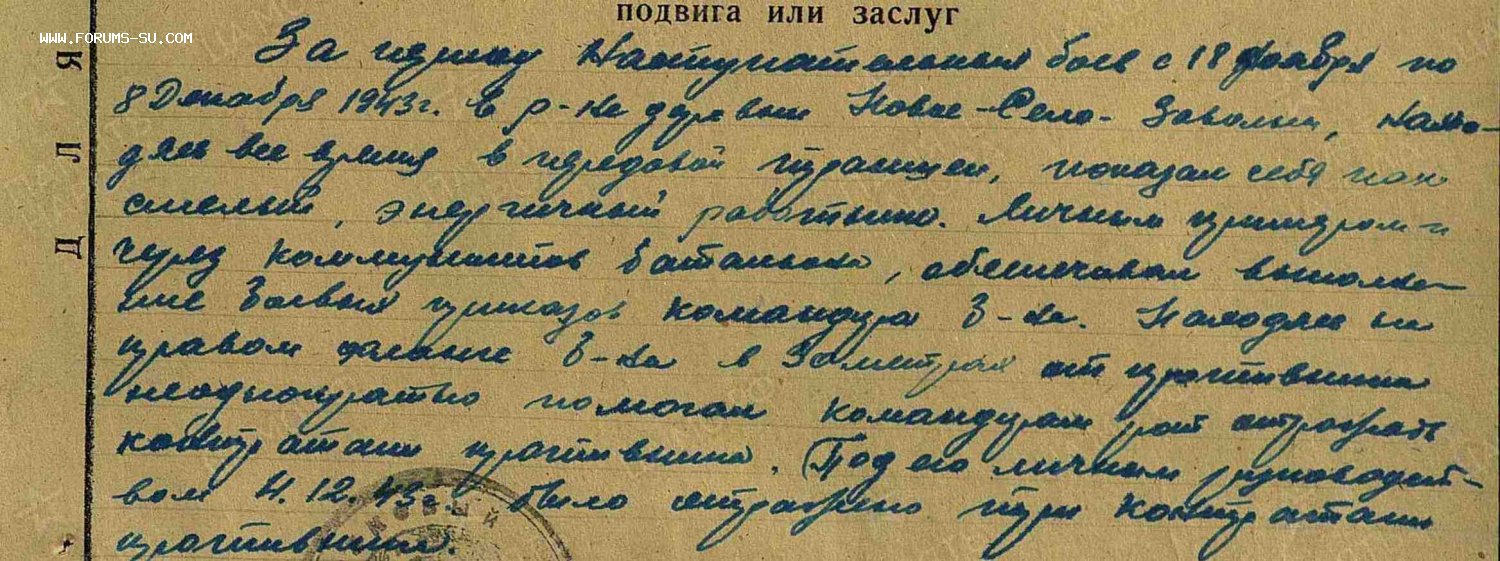 подвига или заслуг
WWW.FORUMS-SU.COM
За период наступательных боев с 18 Ноября по
8 Декабря 1943г. в р-не деревни Новое-Село-Заволны, нахо-
дясь все время в передовой траншеи, показал себя как
смелый, энергичный работник. Личным примером и
через коммунистов батальона, обеспечивал выполне-
ние боевых приказов командира б-на. Находясь на
правом фланге б-на в 30 метрах от противника
неоднократно помогал командирам рот отражать
контратаки противника. Под его личным руководст-
вом 4.12.43г. было отражено три контратаки
противника.
Д Л Я